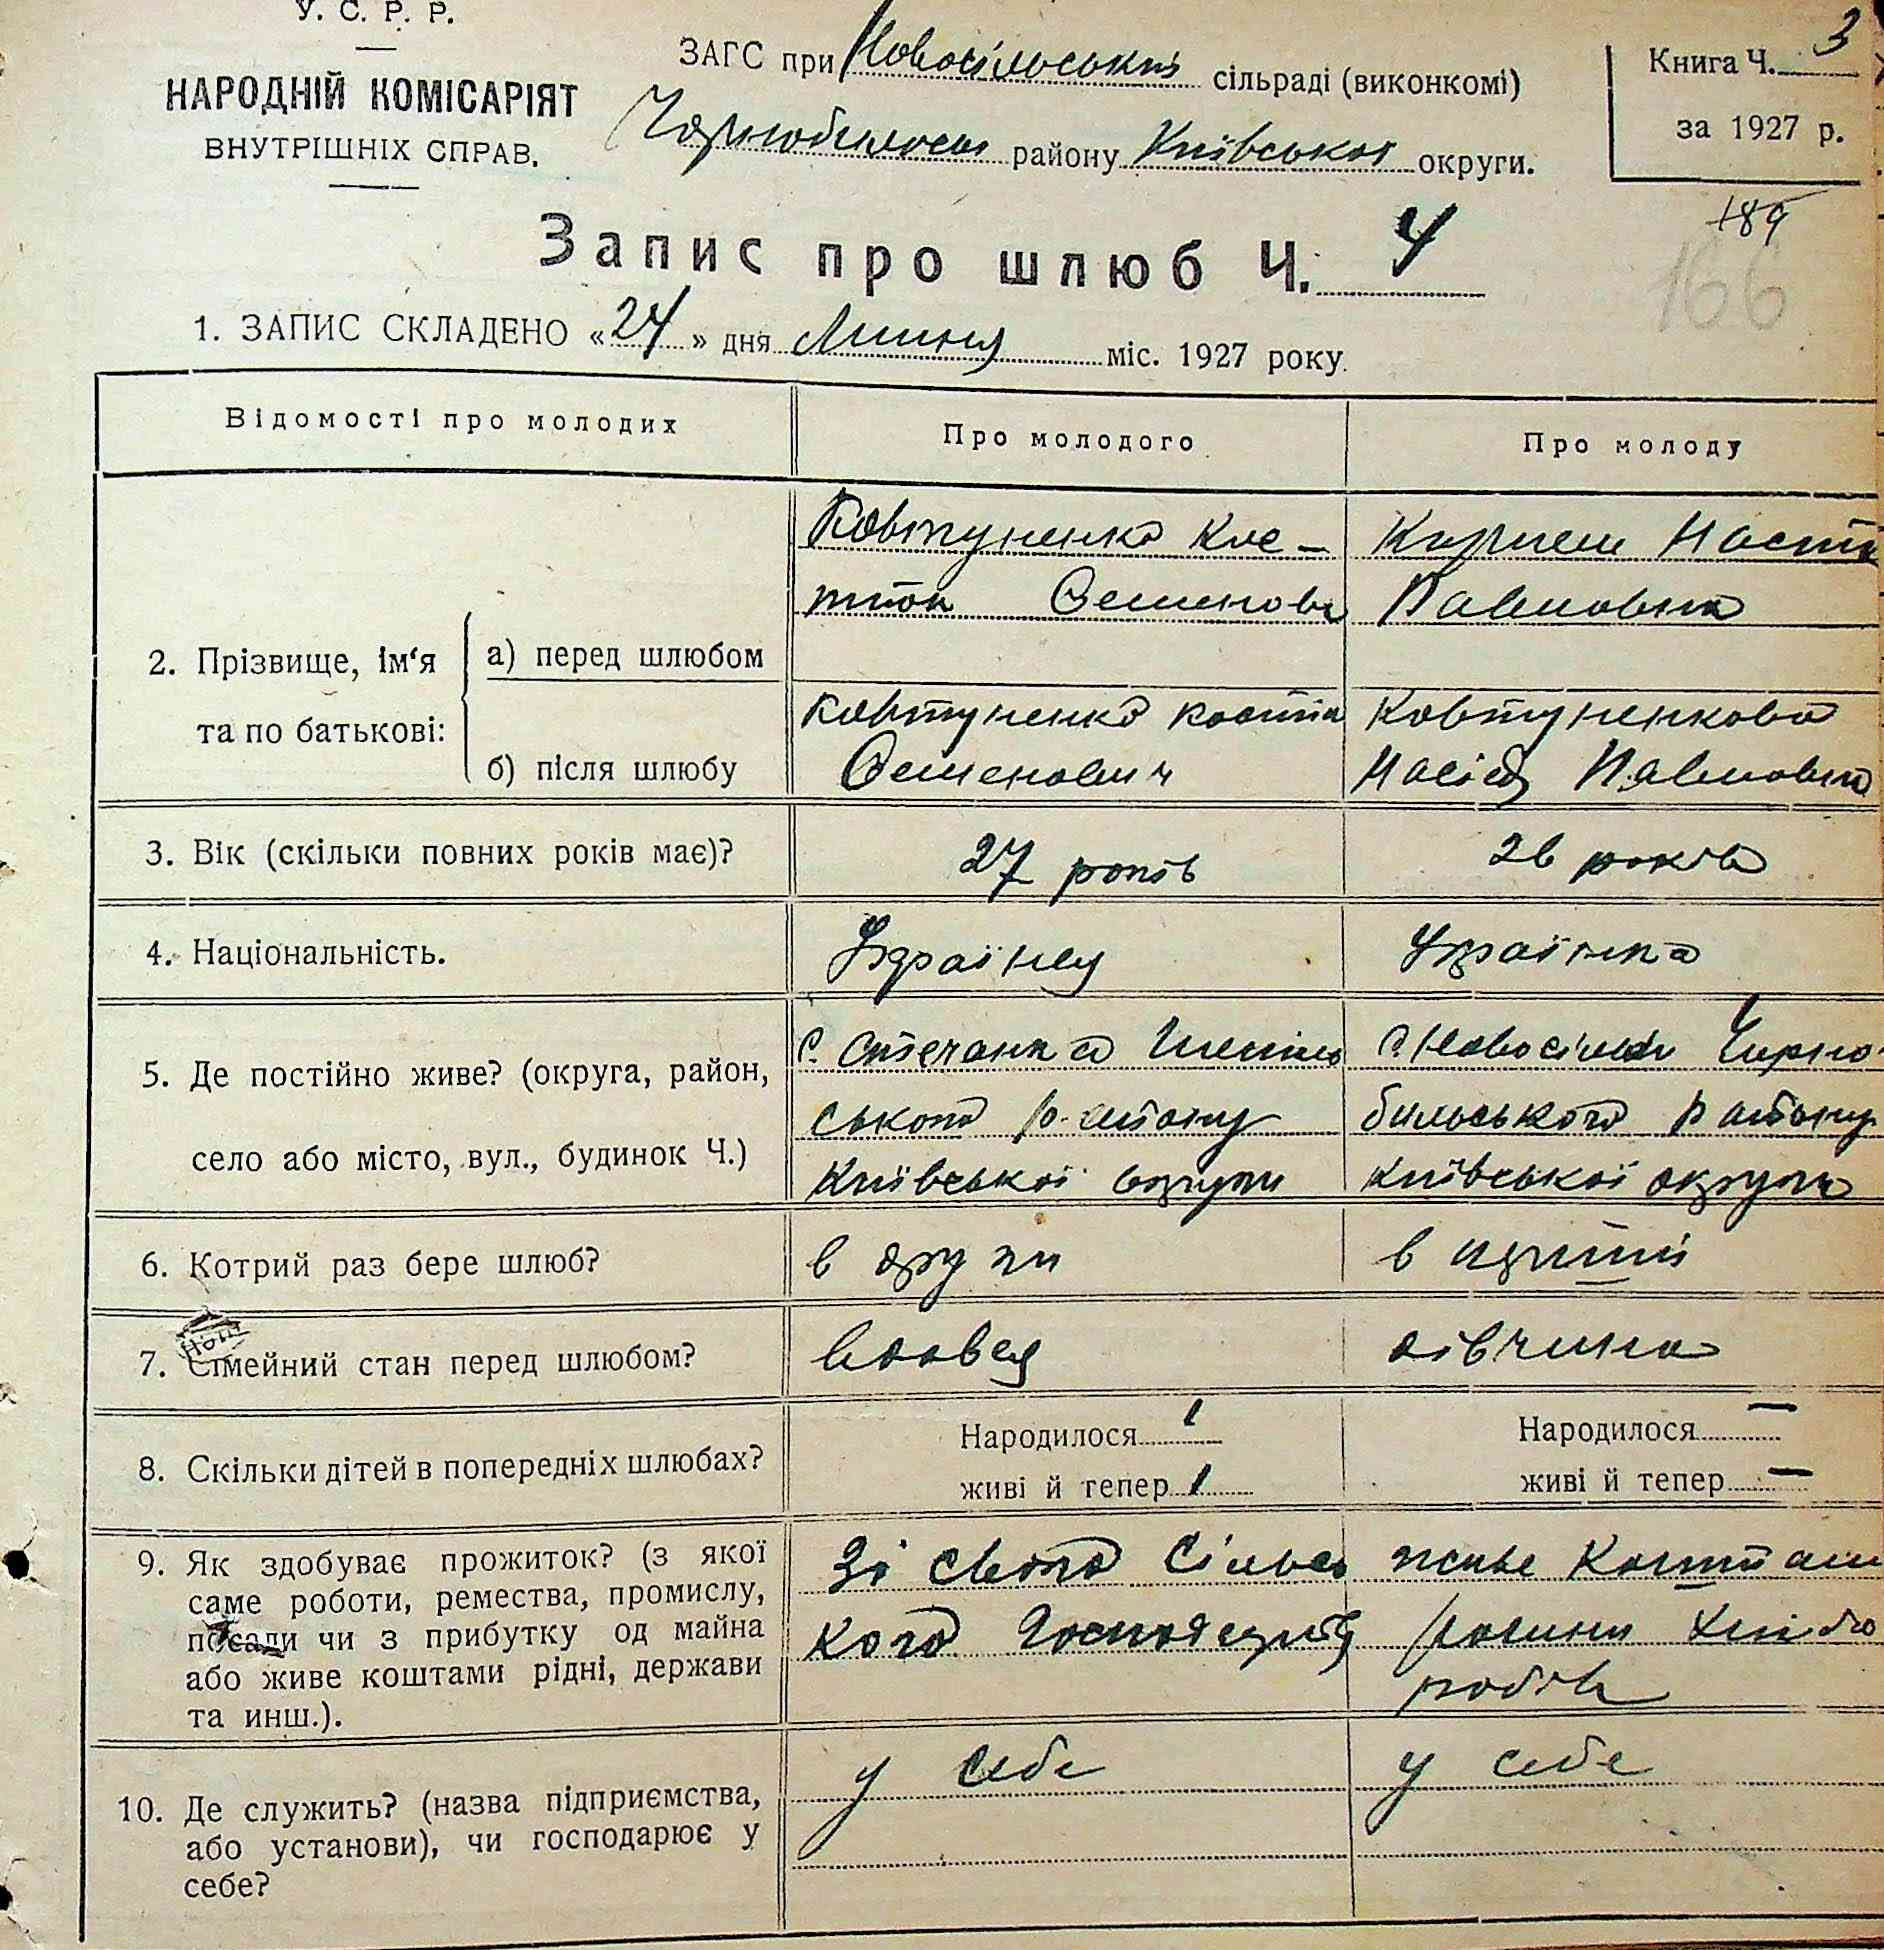 У. С. Р. Р.
НАРОДНІЙ КОМІСАРІЯТ
ВНУТРІШНІХ СПРАВ.
ЗАГС при Новосільській сільраді (виконкомі)
району Київської округи.
Книга Ч. 3
за 1927 р.
189
166
Запис про шлюб Ч. 4
1. ЗАПИС СКЛАДЕНО «24» дня Липня міс. 1927 року.
Відомості про молодих
Про молодого
Про молоду
2. Прізвище, ім‘я та по батькові:
а) перед шлюбом
Ковтуненко Кос-
тюк
Настя
Павловна
б) після шлюбу
Ковтуненко
Семенович
Ковтуненкова
Павловна
3. Вік (скільки повних років має)?
27 років
26 років
4. Національність.
Українец
Українка
5. Де постійно живе? (округа, район,
село або місто, вул., будинок Ч.)
с. Стечанка
ського району
Київської округи
с. Новосілки Чорно-
бильського району
Київської округи
6. Котрий раз бере шлюб?
в други
в
7. Сімейний стан перед шлюбом?
вдовец
дівчина
8. Скільки дітей в попередніх шлюбах?
Народилося 1
живі й тепер 1
Народилося —
живі й тепер —
9. Як здобуває прожиток? (з якої
саме роботи, ремества, промислу,
посади чи з прибутку од майна
або живе коштами рідні, держави
та инш.).
Зі свого сільсь
кого
живе
хлібо
робів
10. Де служить? (назва підприємства,
або установи), чи господарює у
себе?
у себе
у себе